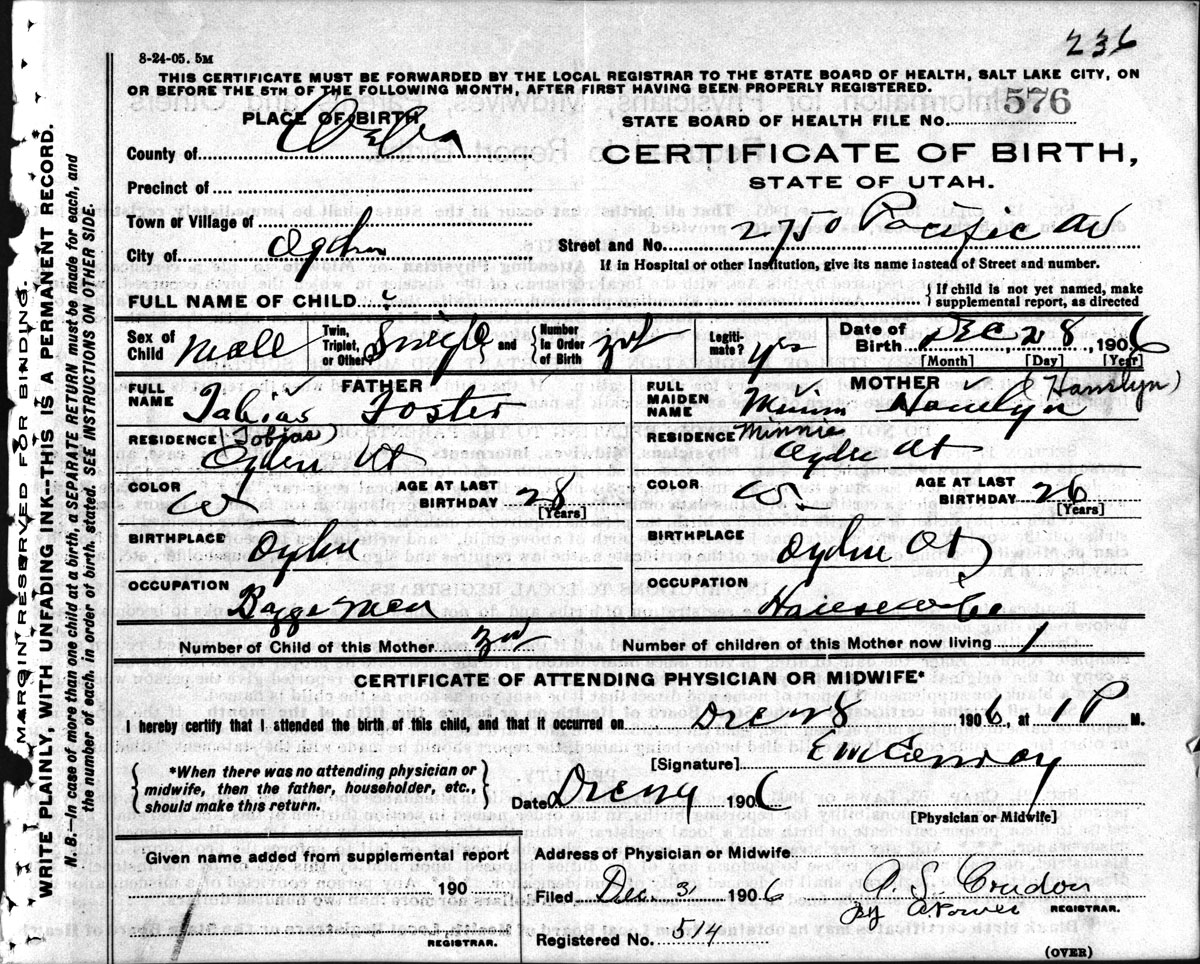 236
8-24-05. 5M
THIS CERTIFICATE MUST BE FORWARDED BY THE LOCAL REGISTRAR TO THE STATE BOARD OF HEALTH, SALT LAKE CITY, ON
OR BEFORE THE 5TH OF THE FOLLOWING MONTH, AFTER FIRST HAVING BEEN PROPERLY REGISTERED.
PLACE OF BIRTH
STATE BOARD OF HEALTH FILE No. 576
County of Weber
CERTIFICATE OF BIRTH,
STATE OF UTAH.
Precinct of
Town or Village of
City of Ogden
Street and No. 2750 Pacific Av
If in Hospital or other Institution, give its name instead of Street and number.
FULL NAME OF CHILD
{ If child is not yet named, make
supplemental report, as directed
Sex of Child Male Twin, Triplet, or Other Single and { Number in Order of Birth Legiti- mate? yes Date of Birth Dec 28, 1906
[Month] [Day] [Year]
FULL NAME FATHER Tabias Foster
(Tobias)
RESIDENCE Ogden Ut
COLOR W AGE AT LAST BIRTHDAY 28 [Years]
BIRTHPLACE Ogden
OCCUPATION Baggeman
FULL MAIDEN NAME MOTHER (Hanslyn)
Minnie
RESIDENCE Ogden Ut
COLOR W AGE AT LAST BIRTHDAY 26 [Years]
BIRTHPLACE Ogden Ut
OCCUPATION Housewife
Number of Child of this Mother Number of children of this Mother now living 1
CERTIFICATE OF ATTENDING PHYSICIAN OR MIDWIFE*
I hereby certify that I attended the birth of this child, and that it occurred on Dec 28 1906, at 1 P M.
[Signature] E M Conroy
{ *When there was no attending physician or
midwife, then the father, householder, etc.,
should make this return. }
Date 1906
[Physician or Midwife]
Given name added from supplemental report
190
REGISTRAR.
Address of Physician or Midwife
Filed Dec. 31 1906
By
REGISTRAR.
Registered No. 514
(OVER)
MARGIN RESERVED FOR BINDING.
WRITE PLAINLY, WITH UNFADING INK---THIS IS A PERMANENT RECORD.
N. B.—In case of more than one child at a birth, a SEPARATE RETURN must be made for each, and
the number of each, in order of birth, stated. SEE INSTRUCTIONS ON OTHER SIDE.